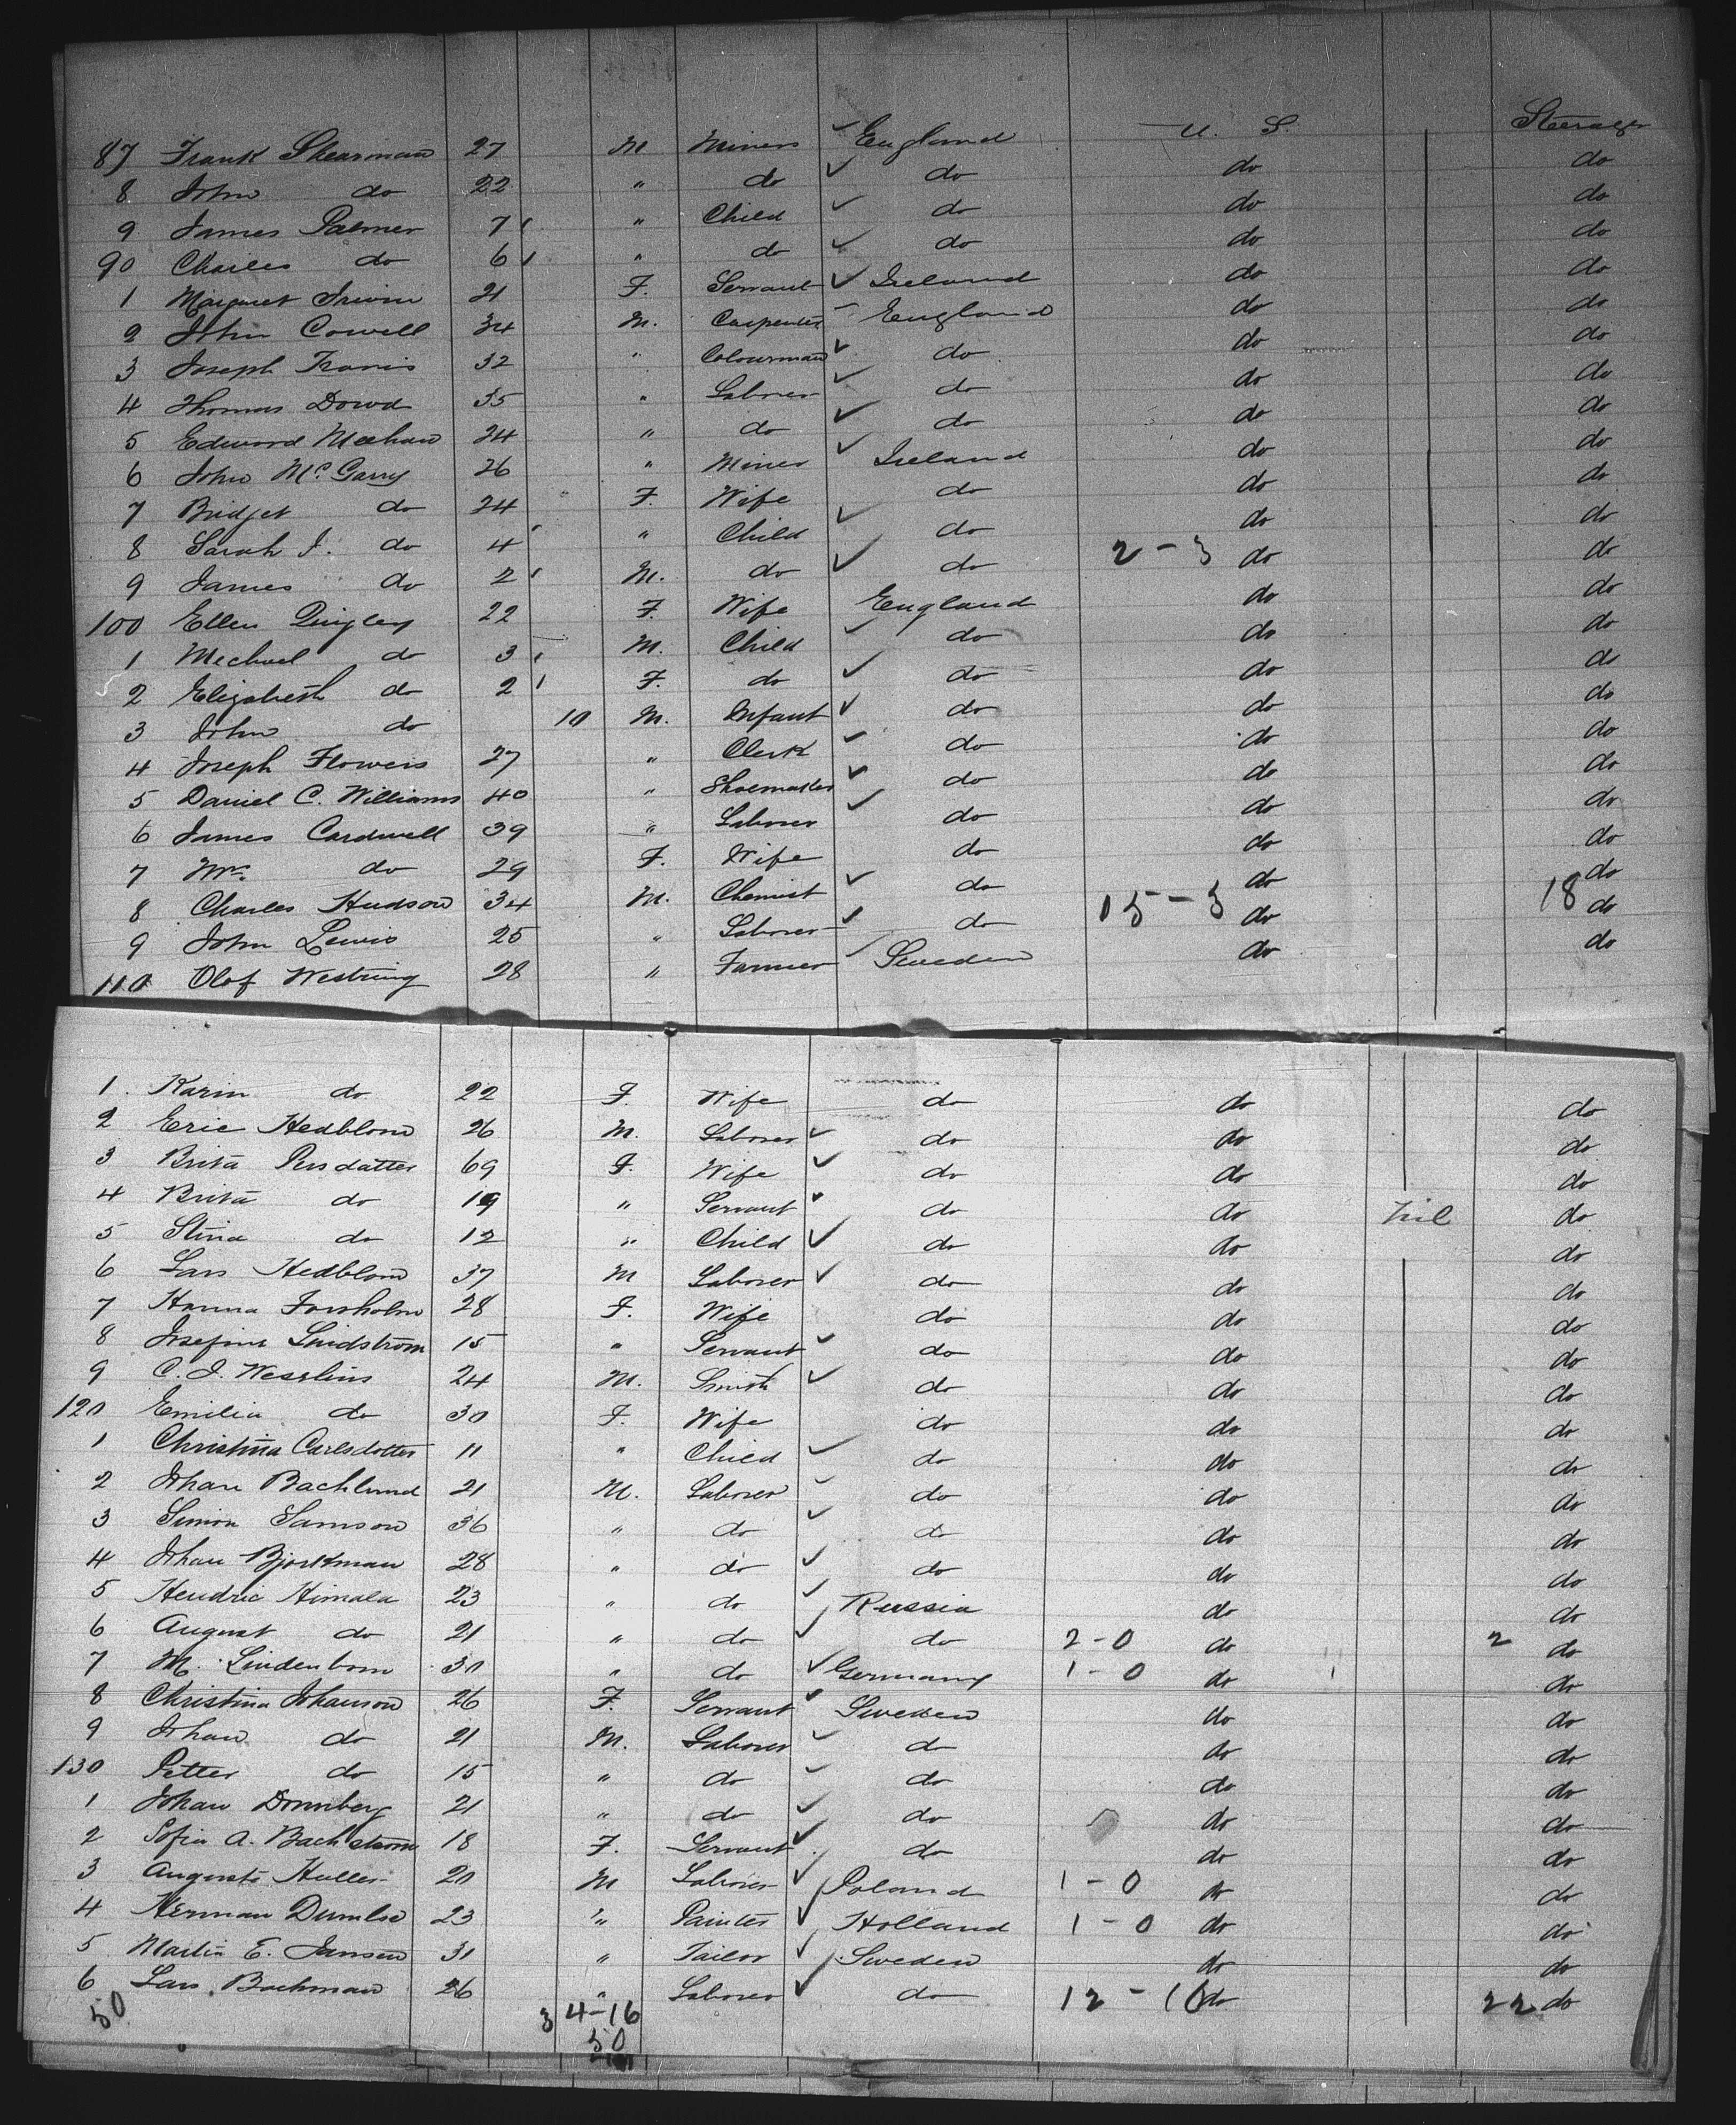 87 Frank Shearman 27 M Miner ✓ England U. S. Steerage
8 John do 22 " do ✓ do do do
9 James Palmer 7 " Child ✓ do do do
90 Charles do 6 " do ✓ do do do
1 Margaret Irwin 21 F. Servant ✓ Ireland do do
2 John Cowell 34 M. Carpenter England do do
3 Joseph Travis 32 " Colourman ✓ do do do
4 Thomas Dowd 35 " Laborer ✓ do do do
5 Edward Meehan 24 " do ✓ do do do
6 John McGarry 26 " Miner ✓ Ireland do do
7 Bridget do 24 F. Wife do do do
8 Sarah J. do 4 " Child ✓ do do do
9 James do 2 M. do ✓ do 2-3 do do
100 Ellen Quigley 22 F. Wife England do do
1 Mechael do 3 M. Child ✓ do do do
2 Elizabeth do 2 F. do ✓ do do do
3 John do 10 M. Infant ✓ do do do
4 Joseph Flowers 27 " Clerk ✓ do do do
5 Daniel C. Williams 40 " Shoemaker ✓ do do do
6 James Cardwell 39 " Laborer ✓ do do do
7 Mrs. do 29 F. Wife do do do
8 Charles Hudson 34 M. Chemist ✓ do do do
9 John Lewis 25 " Laborer ✓ do 15-3 do 18 do
110 Olof Westring 28 " Farmer ✓ Sweden do do
1 Karin do 22 F. Wife do do do
2 Eric Hedblom 26 M. Laborer ✓ do do do
3 Brita Persdatter 69 F. Wife ✓ do do do
4 Brita do 19 " Servant ✓ do do Nil do
5 Stina do 12 " Child ✓ do do do
6 Lars Hedblom 37 M Laborer ✓ do do do
7 Hanna Forsholm 28 F. Wife do do do
8 Josefine Lindstrom 15 " Servant ✓ do do do
9 C. J. Wesslius 24 M. Smith ✓ do do do
120 Emilia do 30 F. Wife do do do
1 Christina Carlsdotter 11 " Child ✓ do do do
2 Johan Bachlund 21 M. Laborer ✓ do do do
3 Simon Samson 36 " do ✓ do do do
4 Johan Bjorkman 28 " do ✓ do do do
5 Hendric Himala 23 " do ✓ Russia do do
6 August do 21 " do ✓ do 2-0 do 2 do
7 M. Lindenborn 30 " do ✓ Germany 1-0 do 1 do
8 Christina Johanson 26 F. Servant ✓ Sweden do do
9 Johan do 21 M. Laborer ✓ do do do
130 Petter do 15 " do ✓ do do do
1 Johan Dornberg 21 " do ✓ do do do
2 Sofia A. Bachstrom 18 F. Servant ✓ do do do
3 Auguste Huller 20 M Laborer ✓ Poland 1-0 do do
4 Herman 23 " Painter ✓ Holland 1-0 do do
5 Martin E. Jansen 31 " Tailor ✓ Sweden do do
6 Lars Bachman 26 " Laborer ✓ do 12-10 do 22 do
50 34-16
50